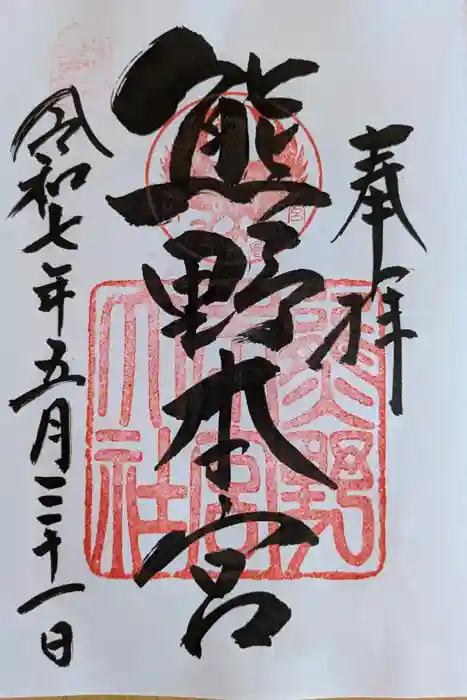 奉拝
熊野本宮
令和七年五月三十一日
熊野
本宮
大社